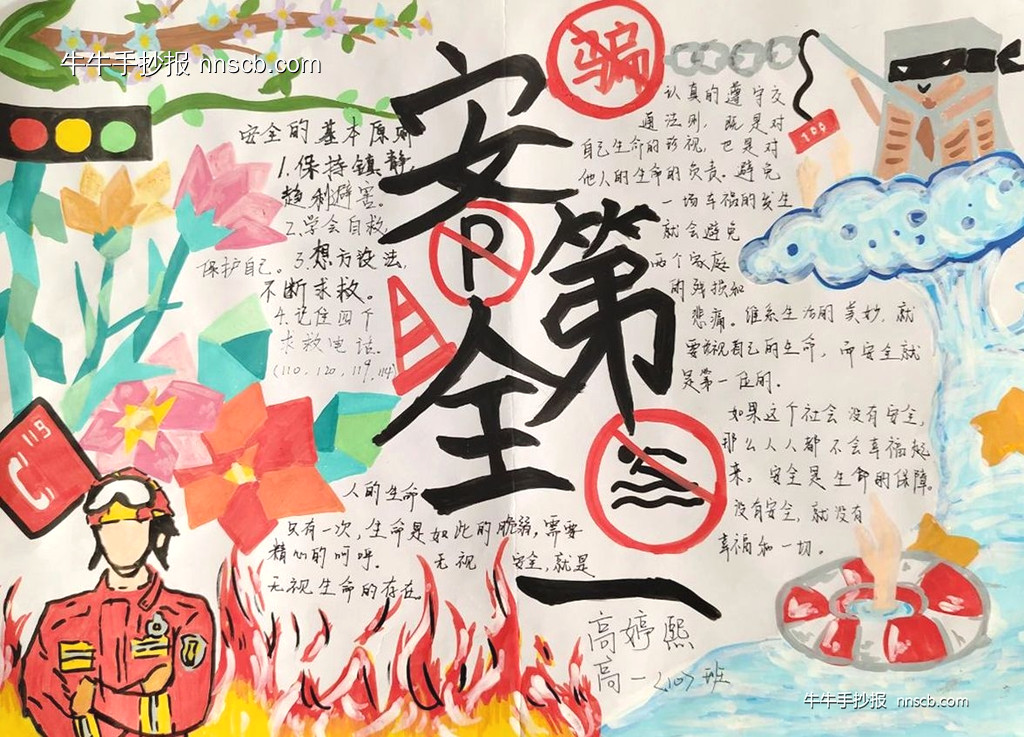 牛牛手抄报 nnscb.com
安全第一
P
骗
100
安全的基本原则
1.保持镇静,
趋利避害。
2.学会自救,
保护自己。3.想方设法,
不断求救。
4.记住四个
求救电话。
(110,120,119,114)
119
人的生命
只有一次,生命是如此的脆弱,需要
精心的呵呼。 无视 安全,就是
无视生命的存在。
认真的遵守交
通法则,既是对
自己生命的珍视,也是对
他人的生命的负责。避免
一场车祸的发生
就会避免
两个家庭
的残损和
悲痛。维系生活的美妙,就
要珍视自己的生命,而安全就
是第一位的。
如果这个社会没有安全,
那么人人都不会幸福起
来。安全是生命的保障。
没有安全,就没有
幸福和一切。
高婷熙
高一<10>班
牛牛手抄报 nnscb.com